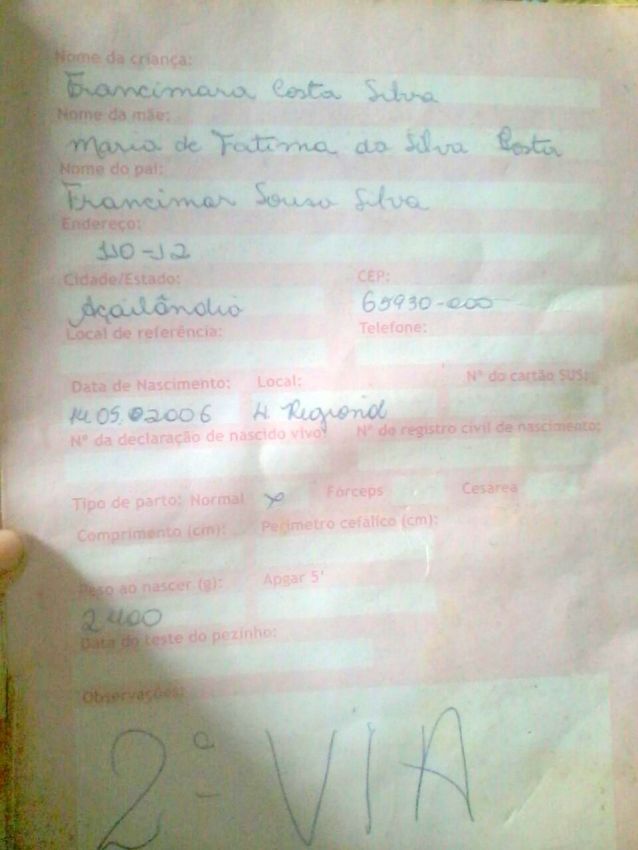 Nome da criança:
Francimara Costa Silva
Nome da mãe:
Maria de Fatima da Silva Costa
Nome do pai:
Francimar Sousa Silva
Endereço:
Cidade/Estado: CEP:
Açailândia 65930-000
Local de referência: Telefone:
Data de Nascimento: Local: Nº do cartão SUS:
14.05.2006 H. Regional
Nº da declaração de nascido vivo: Nº do registro civil de nascimento:
Tipo de parto: Normal x Fórceps Cesárea
Comprimento (cm): Perímetro cefálico (cm):
Peso ao nascer (g): Apgar 5'
2400
Data do teste do pezinho:
Observações:
2ª VIA